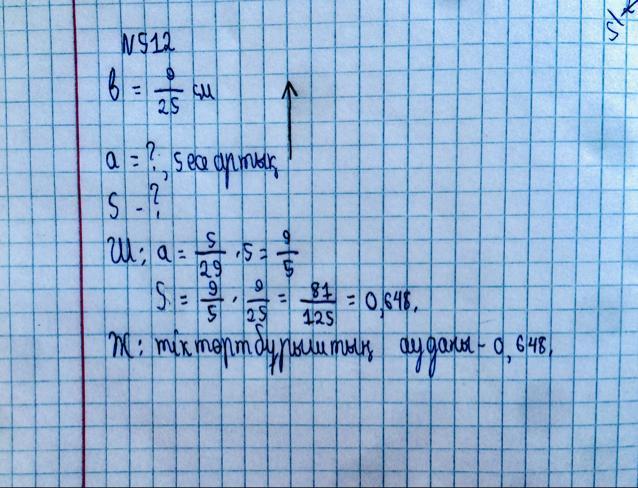 N512
в = 9/25 см
a = ?, 5 есе артық
S - ?
Ш: a = 5/29 · 5 = 9/5
S = 9/5 · 9/25 = 81/125 = 0,648.
Ж: тіктөртбұрыштың ауданы - 0,648.